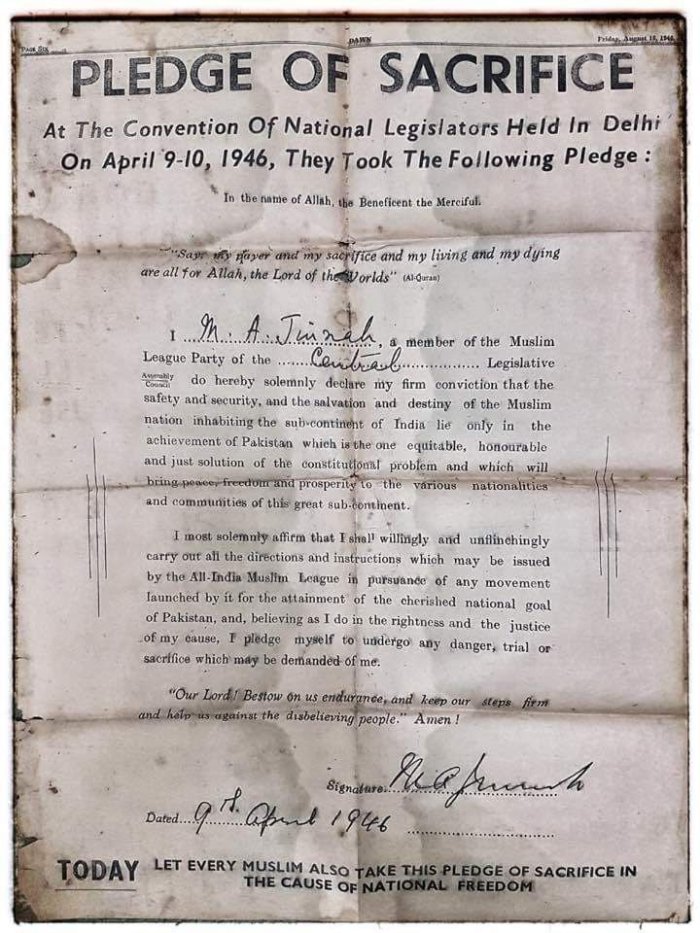 PAGE SIX
DAWN
Friday, August 16, 1946.
PLEDGE OF SACRIFICE
At The Convention Of National Legislators Held In Delhi
On April 9-10, 1946, They Took The Following Pledge :
In the name of Allah, the Beneficent the Merciful.
"Say: my prayer and my sacrifice and my living and my dying
are all for Allah, the Lord of the Worlds" (Al-Quran)
I M. A. Jinnah, a member of the Muslim
League Party of the Central Legislative
Assembly
Council
do hereby solemnly declare my firm conviction that the
safety and security, and the salvation and destiny of the Muslim
nation inhabiting the sub-continent of India lie only in the
achievement of Pakistan which is the one equitable, honourable
and just solution of the constitutional problem and which will
bring peace, freedom and prosperity to the various nationalities
and communities of this great sub-continent.
I most solemnly affirm that I shall willingly and unflinchingly
carry out all the directions and instructions which may be issued
by the All-India Muslim League in pursuance of any movement
launched by it for the attainment of the cherished national goal
of Pakistan, and, believing as I do in the rightness and the justice
of my cause, I pledge myself to undergo any danger, trial or
sacrifice which may be demanded of me.
"Our Lord! Bestow on us endurance, and keep our steps firm
and help us against the disbelieving people." Amen !
Signature. M A Jinnah
Dated 9th April 1946
TODAY LET EVERY MUSLIM ALSO TAKE THIS PLEDGE OF SACRIFICE IN
THE CAUSE OF NATIONAL FREEDOM